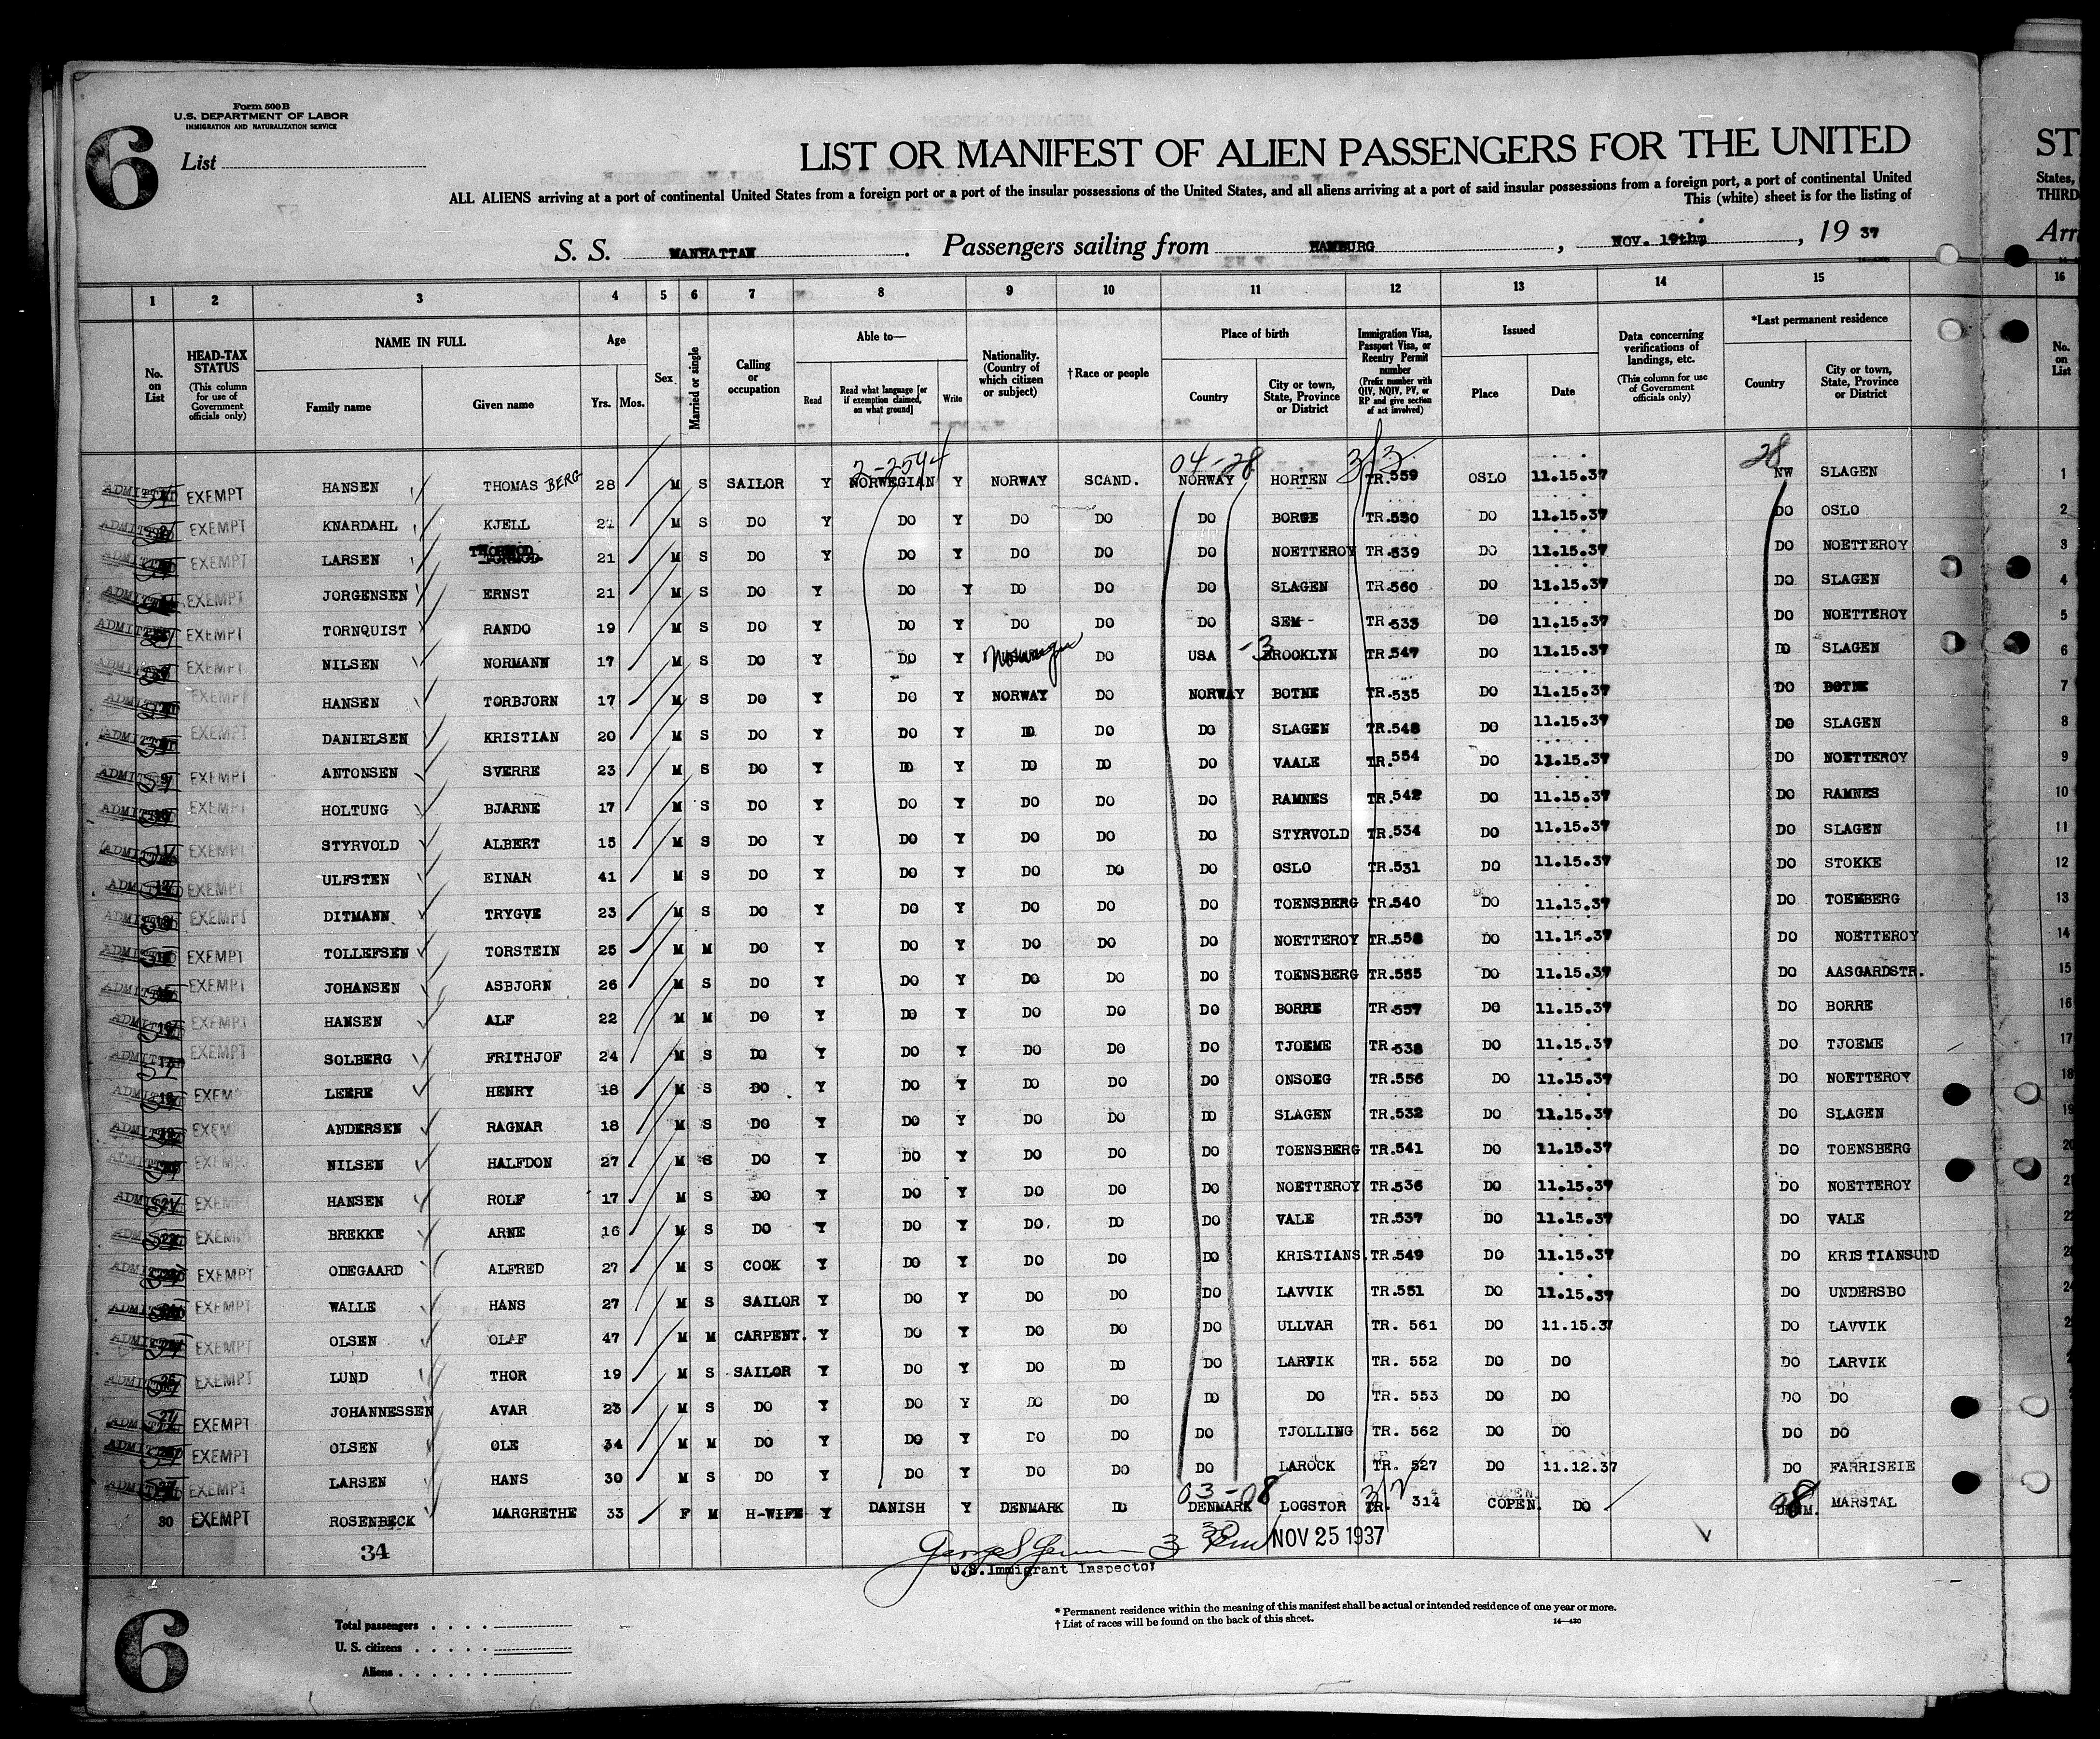 Form 500 B
U.S. DEPARTMENT OF LABOR
IMMIGRATION AND NATURALIZATION SERVICE
6
List
LIST OR MANIFEST OF ALIEN PASSENGERS FOR THE UNITED
ST
ALL ALIENS arriving at a port of continental United States from a foreign port or a port of the insular possessions of the United States, and all aliens arriving at a port of said insular possessions from a foreign port, a port of continental United
States,
This (white) sheet is for the listing of
THIRD
S. S. MANHATTAN . Passengers sailing from HAMBURG , NOV. 19th , 19 37
Arr
1 2 3 4 5 6 7 8 9 10 11 12 13 14 15 16
No. on List
HEAD-TAX STATUS (This column for use of Government officials only)
NAME IN FULL
Family name
Given name
Age
Yrs. Mos.
Sex
Married or single
Calling or occupation
Able to—
Read
Read what language [or if exemption claimed, on what ground]
Write
Nationality. (Country of which citizen or subject)
†Race or people
Place of birth
Country
City or town, State, Province or District
Immigration Visa, Passport Visa, or Reentry Permit number (Prefix number with QIV, NQIV, PV, or RP and give section of act involved)
Issued
Place
Date
Data concerning verifications of landings, etc. (This column for use of Government officials only)
*Last permanent residence
Country
City or town, State, Province or District
No. on List
2-2544 04-28 3/3 28
ADMITTED EXEMPT HANSEN THOMAS BERG 28 M S SAILOR Y NORWEGIAN Y NORWAY SCAND. NORWAY HORTEN TR.559 OSLO 11.15.37 NW SLAGEN 1
ADMITTED EXEMPT KNARDAHL KJELL 21 M S DO Y DO Y DO DO DO BORGE TR.550 DO 11.15.37 DO OSLO 2
ADMITTED EXEMPT LARSEN THORMOD 21 M S DO Y DO Y DO DO DO NOETTEROY TR.539 DO 11.15.37 DO NOETTEROY 3
ADMITTED EXEMPT JORGENSEN ERNST 21 M S DO Y DO Y DO DO DO SLAGEN TR.560 DO 11.15.37 DO SLAGEN 4
ADMITTED EXEMPT TORNQUIST RANDO 19 M S DO Y DO Y DO DO DO SEM TR.533 DO 11.15.37 DO NOETTEROY 5
ADMITTED EXEMPT NILSEN NORMANN 17 M S DO Y DO Y DO USA -3 BROOKLYN TR.547 DO 11.15.37 DO SLAGEN 6
ADMITTED EXEMPT HANSEN TORBJORN 17 M S DO Y DO Y NORWAY DO NORWAY BOTNE TR.535 DO 11.15.37 DO BOTNE 7
ADMITTED EXEMPT DANIELSEN KRISTIAN 20 M S DO Y DO Y DO DO DO SLAGEN TR.548 DO 11.15.37 DO SLAGEN 8
ADMITTED 9 EXEMPT ANTONSEN SVERRE 23 M S DO Y DO Y DO DO DO VAALE TR.554 DO 11.15.37 DO NOETTEROY 9
ADMITTED EXEMPT HOLTUNG BJARNE 17 M S DO Y DO Y DO DO DO RAMNES TR.542 DO 11.15.37 DO RAMNES 10
ADMITTED 11 EXEMPT STYRVOLD ALBERT 15 M S DO Y DO Y DO DO DO STYRVOLD TR.534 DO 11.15.37 DO SLAGEN 11
ADMITTED 12 EXEMPT ULFSTEN EINAR 41 M S DO Y DO Y DO DO DO OSLO TR.531 DO 11.15.37 DO STOKKE 12
ADMITTED 13 EXEMPT DITMANN TRYGVE 23 M S DO Y DO Y DO DO DO TOENSBERG TR.540 DO 11.15.37 DO TOENBERG 13
ADMITTED EXEMPT TOLLEFSEN TORSTEIN 25 M M DO Y DO Y DO DO DO NOETTEROY TR.558 DO 11.15.37 DO NOETTEROY 14
ADMITTED EXEMPT JOHANSEN ASBJORN 26 M S DO Y DO Y DO DO DO TOENSBERG TR.555 DO 11.15.37 DO AASGARDSTR. 15
ADMITTED 16 EXEMPT HANSEN ALF 22 M M DO Y DO Y DO DO DO BORRE TR.557 DO 11.15.37 DO BORRE 16
ADMITTED 17 EXEMPT SOLBERG FRITHJOF 24 M S DO Y DO Y DO DO DO TJOEME TR.538 DO 11.15.37 DO TJOEME 17
ADMITTED 18 EXEMP LEERE HENRY 18 M S DO Y DO Y DO DO DO ONSOEG TR.556 DO 11.15.37 DO NOETTEROY 18
ADMITTED 19 EXEMP ANDERSEN RAGNAR 18 M S DO Y DO Y DO DO DO SLAGEN TR.532 DO 11.15.37 DO SLAGEN 19
ADMITTED EXEMP NILSEN HALFDON 27 M S DO Y DO Y DO DO DO TOENSBERG TR.541 DO 11.15.37 DO TOENSBERG 20
ADMITTED 21 EXEMP HANSEN ROLF 17 M S DO Y DO Y DO DO DO NOETTEROY TR.536 DO 11.15.37 DO NOETTEROY 2
ADMITTED 22 EXEMP BREKKE ARNE 16 M S DO Y DO Y DO DO DO VALE TR.537 DO 11.15.37 DO VALE 22
ADMITTED EXEMPT ODEGAARD ALFRED 27 M S COOK Y DO Y DO DO DO KRISTIANS. TR.549 DO 11.15.37 DO KRISTIANSUND 2
ADMITTED EXEMPT WALLE HANS 27 M S SAILOR Y DO Y DO DO DO LAVVIK TR.551 DO 11.15.37 DO UNDERSBO 24
ADMITTED EXEMPT OLSEN OLAF 47 M M CARPENT. Y DO Y DO DO DO ULLVAR TR. 561 DO 11.15.37 DO LAVVIK 2
ADMITTED 26 EXEMPT LUND THOR 19 M S SAILOR Y DO Y DO DO DO LARVIK TR. 552 DO DO DO LARVIK
ADMITTED 27 EXEMPT JOHANNESSEN AVAR 23 M S DO Y DO Y DO DO DO DO TR. 553 DO DO DO DO
ADMITTED EXEMPT OLSEN OLE 34 M M DO Y DO Y DO DO DO TJOLLING TR. 562 DO DO DO DO
ADMITTED EXEMPT LARSEN HANS 30 M S DO Y DO Y DO DO DO LAROCK TR. 527 DO 11.12.37 DO FARRISEIE
03-08 3/2 08
30 EXEMPT ROSENBECK MARGRETHE 33 F M H-WIFE Y DANISH Y DENMARK DO DENMARK LOGSTOR TR. 314 COPEN. DO DENM. MARSTAL
34
NOV 25 1937
U.S. Immigrant Inspector
6
Total passengers
U. S. citizens
Aliens
* Permanent residence within the meaning of this manifest shall be actual or intended residence of one year or more.
† List of races will be found on the back of this sheet.
14—430